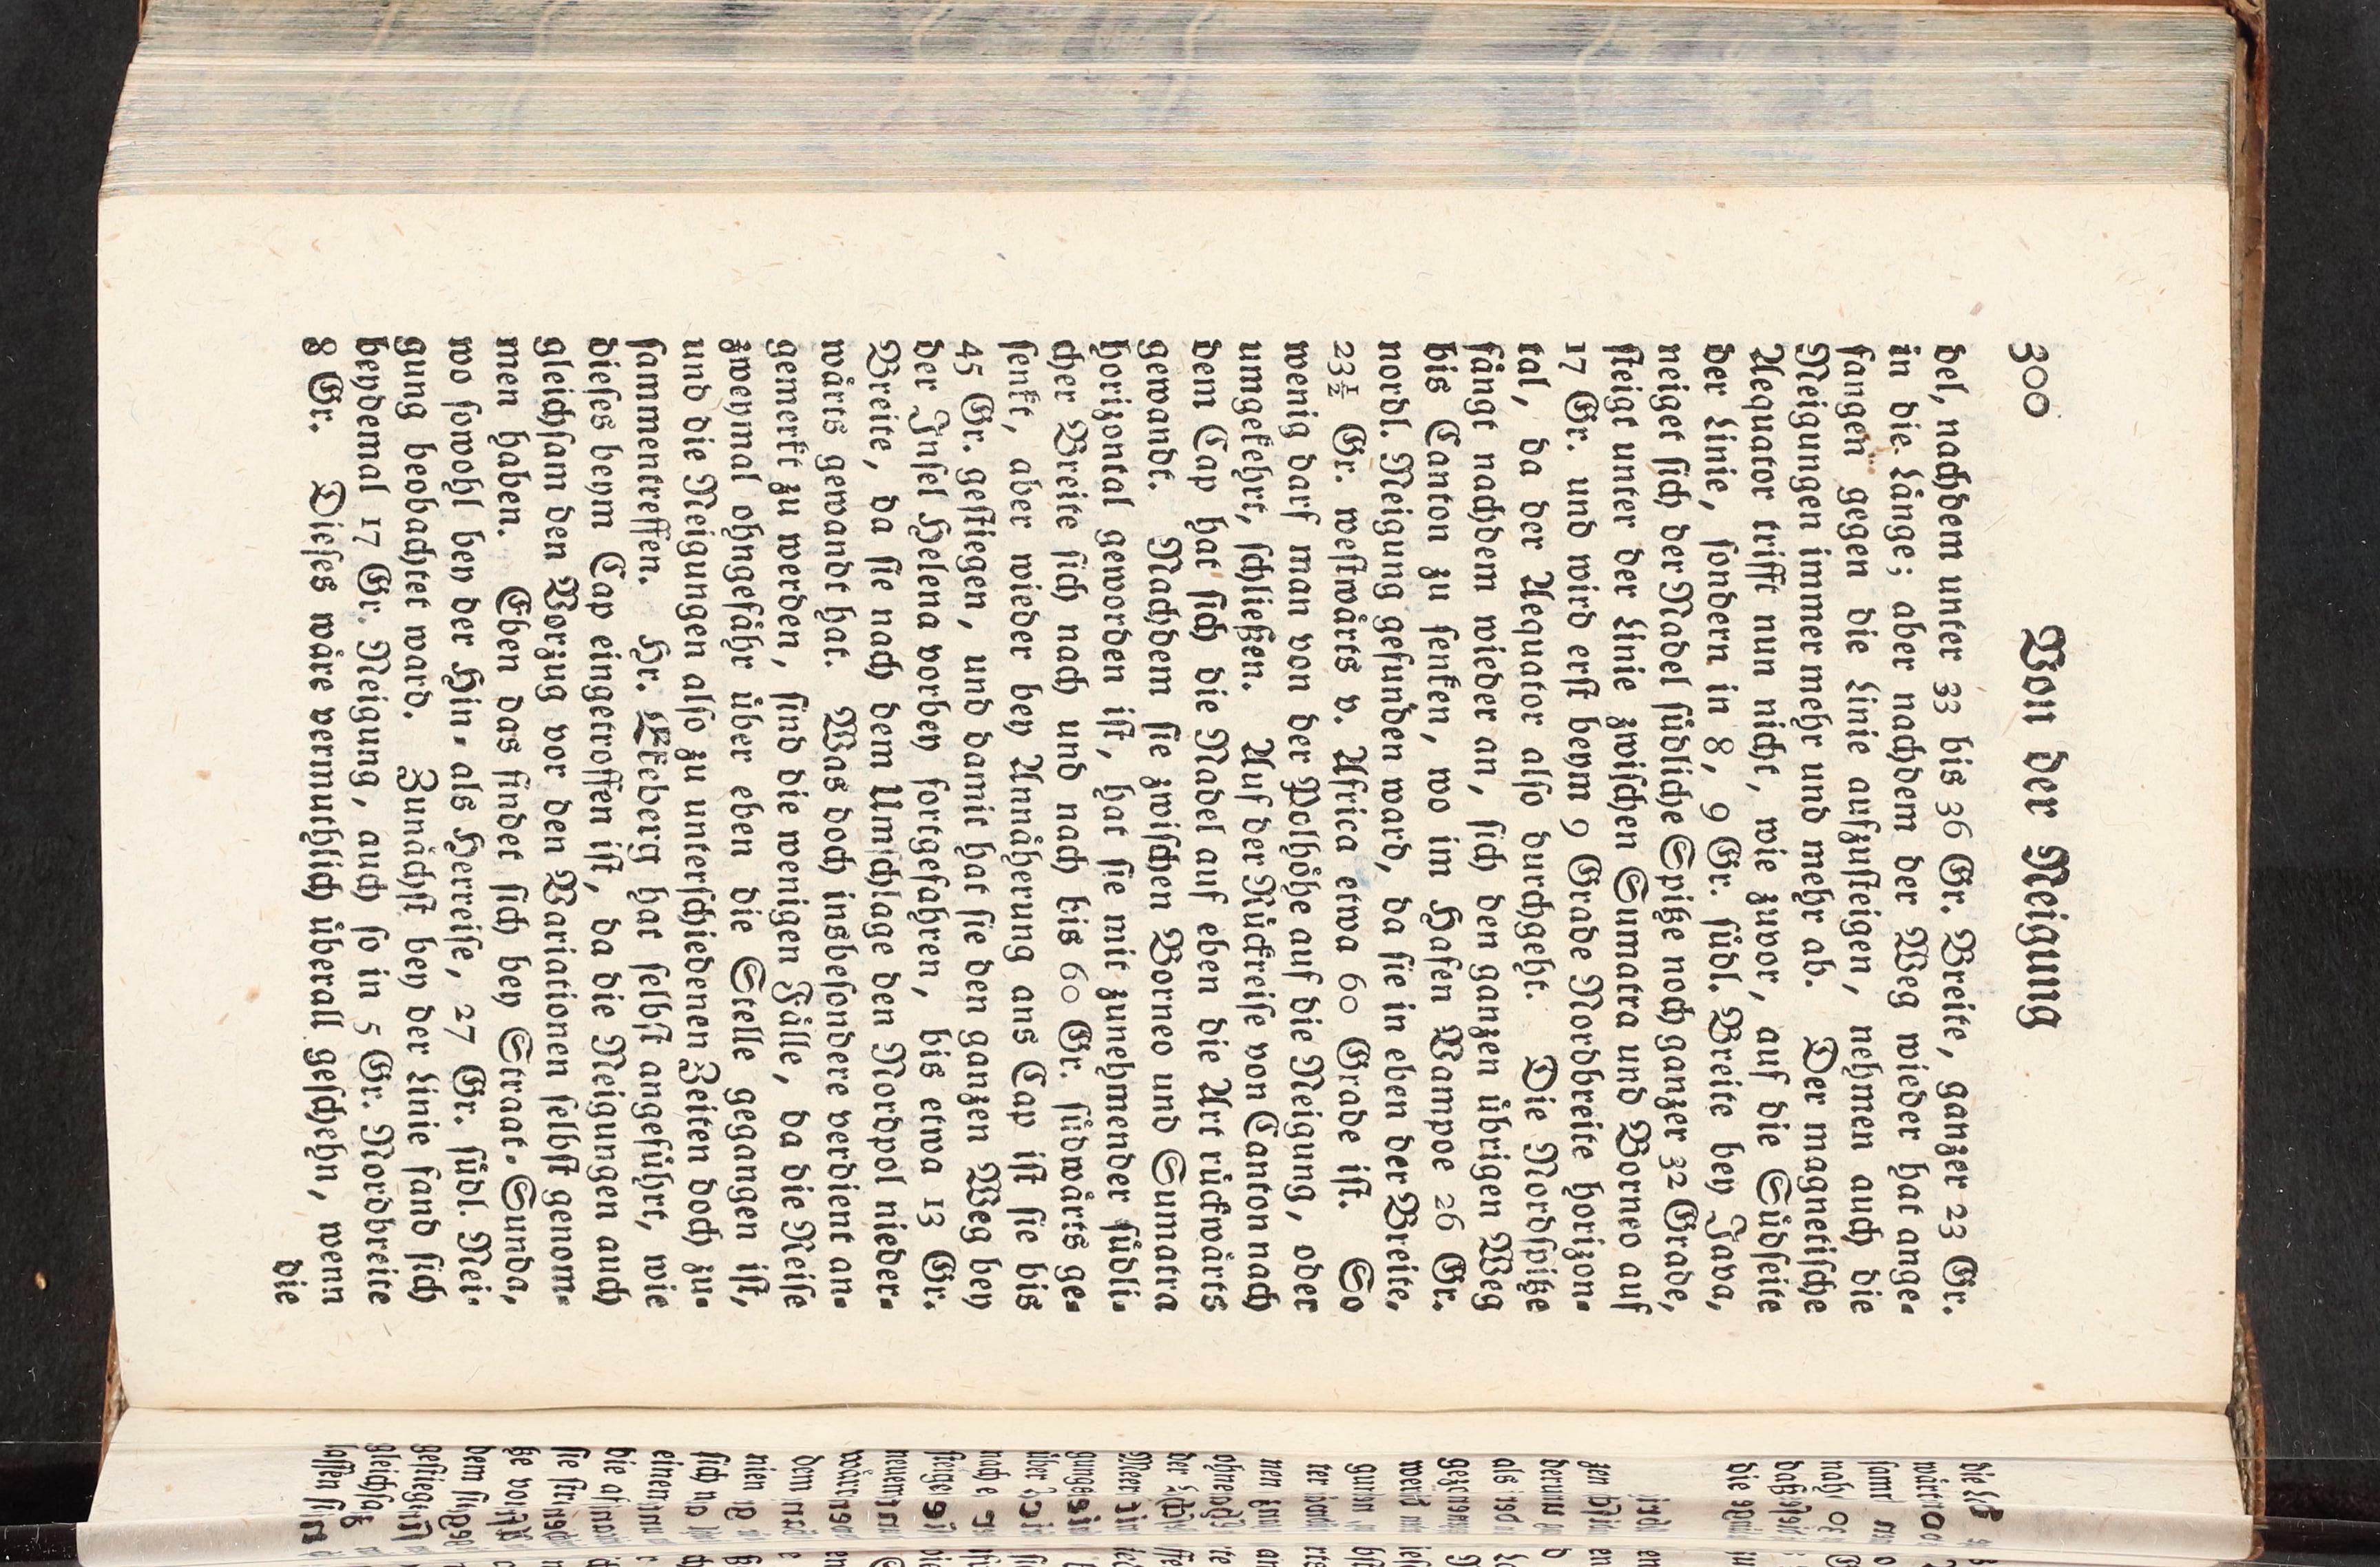 300 Von der Neigung
del, nachdem unter 33 bis 36 Gr. Breite, ganzer 23 Gr.
in die Länge; aber nachdem der Weg wieder hat ange-
fangen gegen die Linie aufzusteigen, nehmen auch die
Neigungen immer mehr und mehr ab. Der magnetische
Aequator trifft nun nicht, wie zuvor, auf die Südseite
der Linie, sondern in 8, 9 Gr. südl. Breite bey Java,
neiget sich der Nadel südliche Spitze noch ganzer 32 Grade,
steigt unter der Linie zwischen Sumatra und Borneo auf
17 Gr. und wird erst beym 9 Grade Nordbreite horizon-
tal, da der Aequator also durchgeht. Die Nordspitze
fängt nachdem wieder an, sich den ganzen übrigen Weg
bis Canton zu senken, wo im Hafen Wampoe 26 Gr.
nordl. Neigung gefunden ward, da sie in eben der Breite,
23½ Gr. westwärts v. Africa etwa 60 Grade ist. So
wenig darf man von der Polhöhe auf die Neigung, oder
umgekehrt, schließen. Auf der Rückreise von Canton nach
dem Cap hat sich die Nadel auf eben die Art rückwärts
gewandt. Nachdem sie zwischen Borneo und Sumatra
horizontal geworden ist, hat sie mit zunehmender südli-
cher Breite sich nach und nach bis 60 Gr. südwärts ge-
senkt, aber wieder bey Annäherung ans Cap ist sie bis
45 Gr. gestiegen, und damit hat sie den ganzen Weg bey
der Insel Helena vorbey fortgefahren, bis etwa 13 Gr.
Breite, da sie nach dem Umschlage den Nordpol nieder-
wärts gewandt hat. Was doch insbesondere verdient an-
gemerkt zu werden, sind die wenigen Fälle, da die Reise
zweymal ohngefähr über eben die Stelle gegangen ist,
und die Neigungen also zu unterschiedenen Zeiten doch zu-
sammentreffen. Hr. Ekeberg hat selbst angeführt, wie
dieses beym Cap eingetroffen ist, da die Neigungen auch
gleichsam den Vorzug vor den Variationen selbst genom-
men haben. Eben das findet sich bey Straat-Sunda,
wo sowohl bey der Hin- als Herreise, 27 Gr. südl. Nei-
gung beobachtet ward. Zunächst bey der Linie fand sich
beydemal 17 Gr. Neigung, auch so in 5 Gr. Nordbreite
8 Gr. Dieses wäre vermuthlich überall geschehn, wenn
die